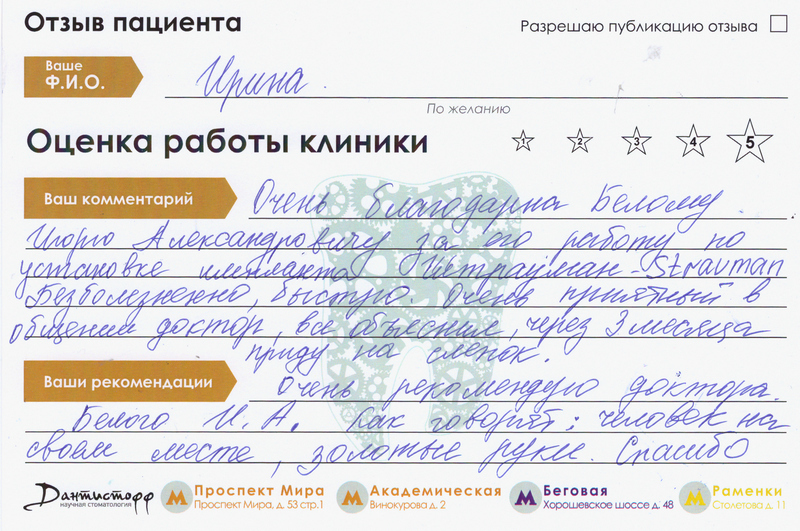 Отзыв пациента
Разрешаю публикацию отзыва
Ваше
Ф.И.О.
Ирина
По желанию
Оценка работы клиники
1 2 3 4 5
Ваш комментарий
Очень благодарна Белому
Игорю Александровичу за его работу по
установке импланта Штрауман - Strauman
Безболезненно, быстро. Очень приятный в
общении доктор, все объяснил, через 3 месяца
приду на слепок.
Ваши рекомендации
Очень рекомендую доктора.
Белого И.А. Как говорят: человек на
своем месте, золотые руки. Спасибо
Дантистофф
научная стоматология
М Проспект Мира
Проспект Мира, д. 53 стр.1
М Академическая
Винокурова д. 2
М Беговая
Хорошевское шоссе д. 48
М Раменки
Столетова д. 11